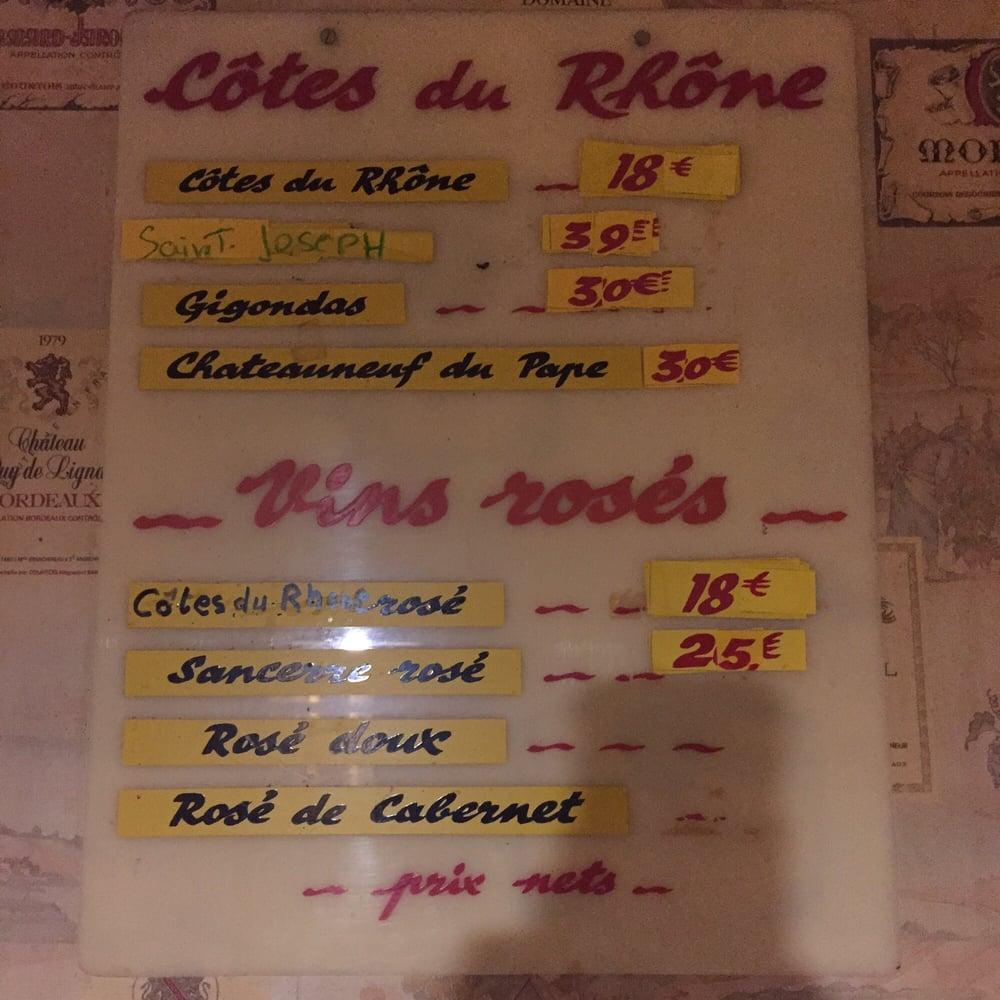 DOMAINE
APPELLATION CONTRÔ
Côtes du Rhône
Côtes du Rhône 18 €
Saint. Joseph 39€
Gigondas 30€
Chateauneuf du Pape 30€
MO
APPELLATI
1979
Château
uy de Ligna
ORDEAUX
ATION BORDEAUX CONTRÔL
Vins rosés
Côtes du Rhône rosé 18 €
Sancerre rosé 25 €
Rosé doux
Rosé de Cabernet
prix nets